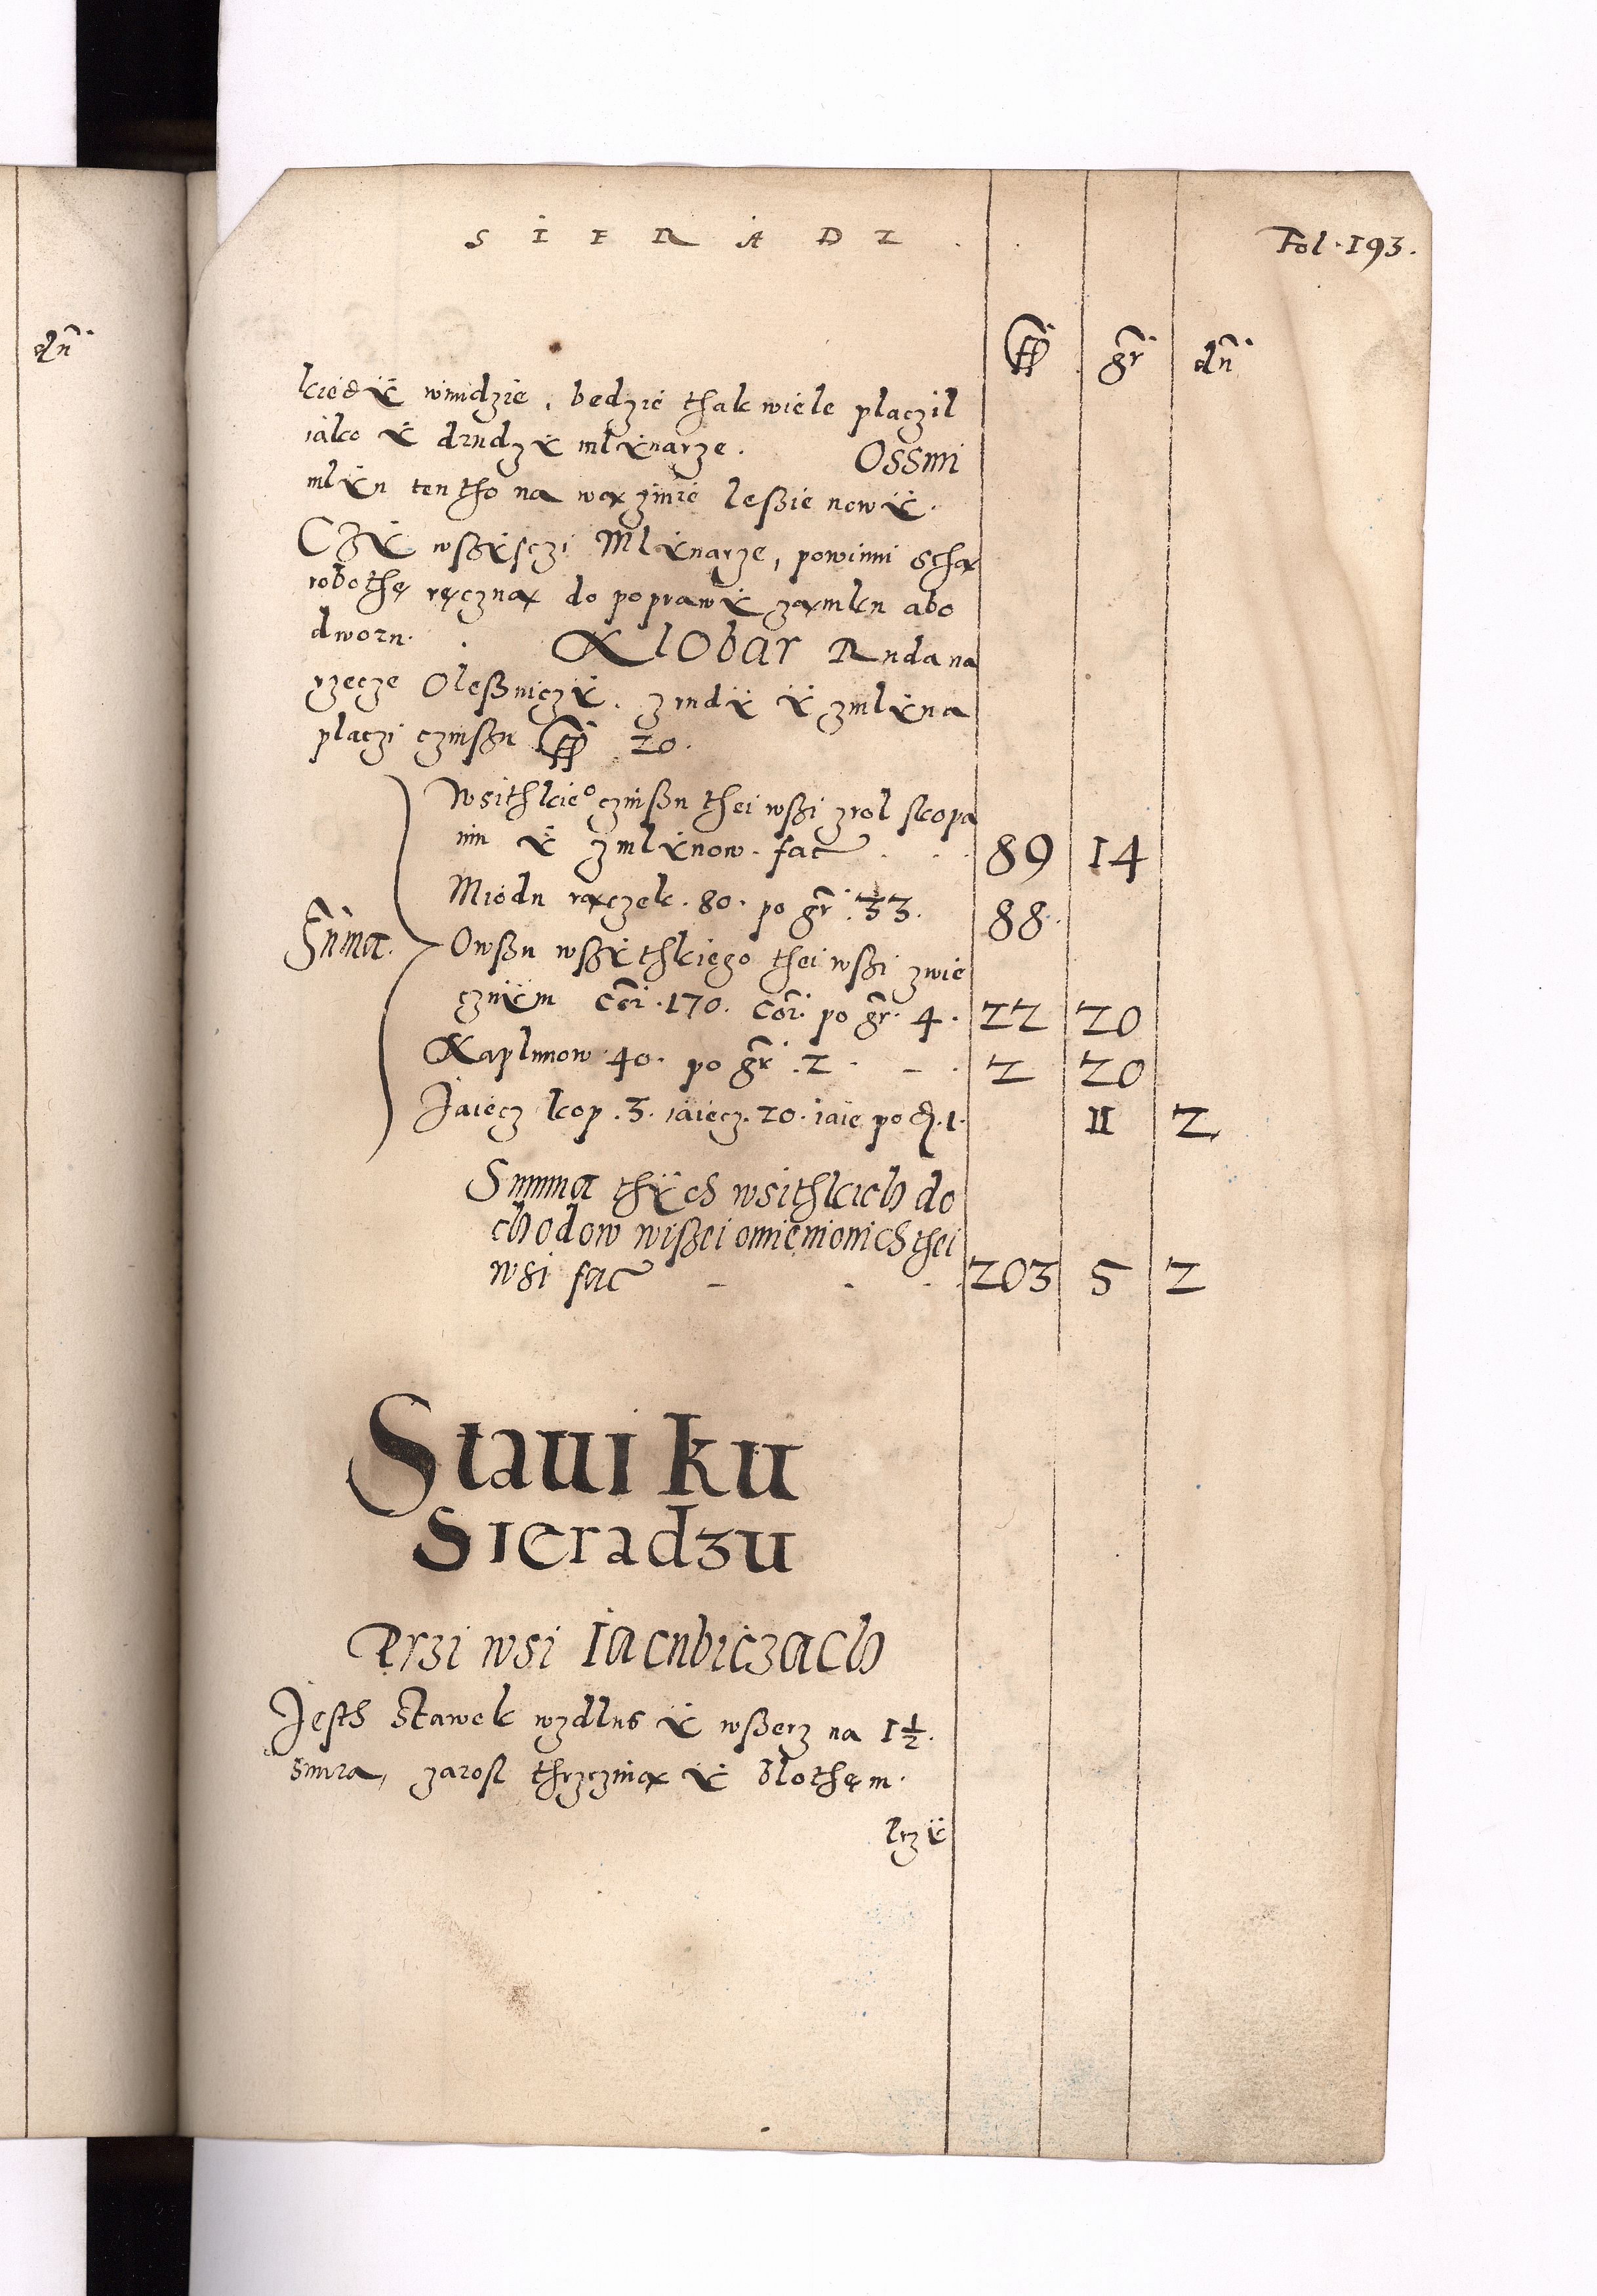 SIERADZ.
Fol. 193.
fl gr dn
kiedÿ winidzie, bedzie thak wiele placzil
iako ÿ drudzÿ mlÿnarze. Ossmi
mlÿn ten tho na woyzinie leßie nowÿ.
CZÿ wßÿsczi Mlÿnarze, powinni sthą
robothę ręczną do poprawÿ zamku abo
dworu. Klobar Ruda na
rzecze Oleßniczÿ. z rudÿ ÿ z mlÿna
placzi czinßu fl 20.
Wsithkie° czinßu thei wßi z rol skopa
nin ÿ z mlÿnow. fac 89 14
Miodu rączek. 80. po gr. 33. 88.
Sum̃a.
Owßu wßÿthkiego thei wßi z wie
cznÿm Cor. 170. Cor. po gr. 4. 22 20
Kaplunow 40. po gr. 2 2 20
Jaiecz kop. 3. iaiecz. 20. iaie po d. 1. 11 2
Summa thÿch wsithkich do
chodow wißei omienionich thei
wsi fac 203 5 2
Stawi ku
Sieradzu
Przi wsi Iacubiczach
Jesth Stawek wzdlus ÿ wßerz na 1½.
snura, zarosl thrzcziną ÿ blothem.
krzÿ
dn